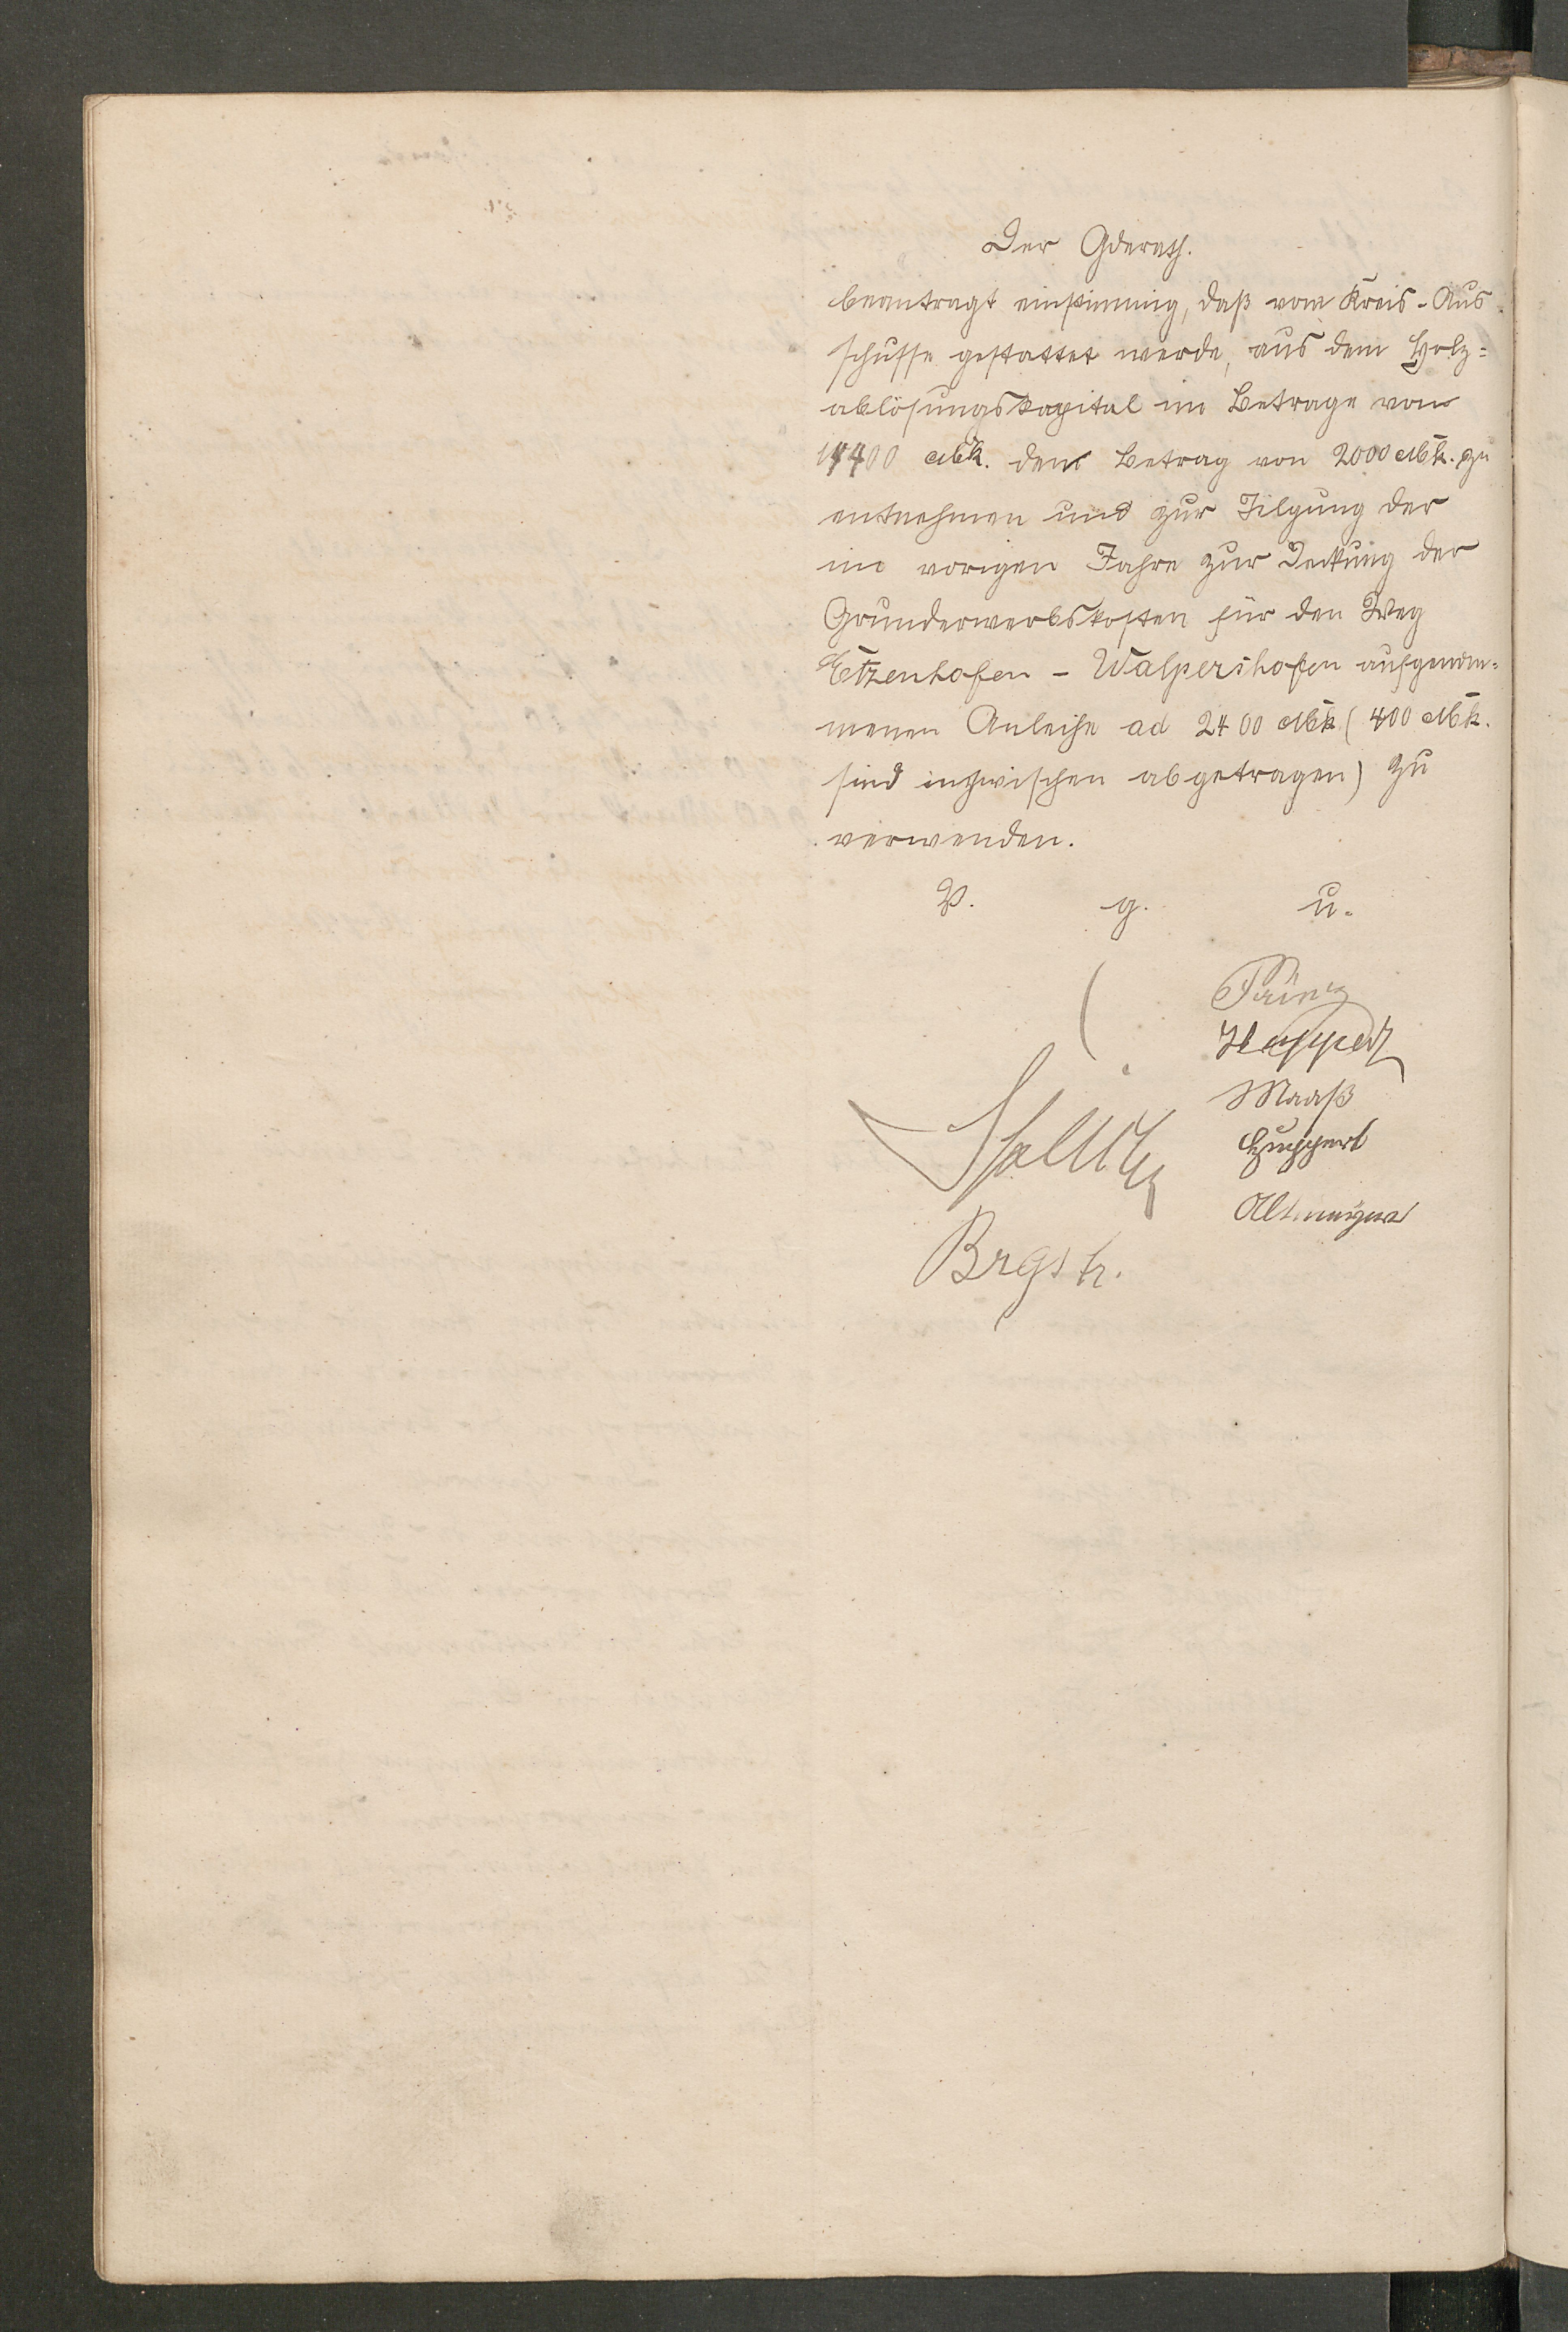 Der Gderath.
beantragt einstimmig, daß vom Kreis-Aus
schusse gestattet werde, aus dem Holz=
ablösungskapital im Betrage von
14400 Mk. den Betrag von 2000 Mk. zu
entnehmen und zur Tilgung der
im vorigen Jahre zur Deckung der
Grunderwerbskosten für den Weg
Etzenhofen - Walpershofen aufgenom=
menen Anleihe ad 2400 Mk (400 Mk.
sind inzwischen abgetragen) zu
verwenden.
V. g. u.
Prinz
Huppert
Maaß
Huppert
Altmeyer
Brgstr.